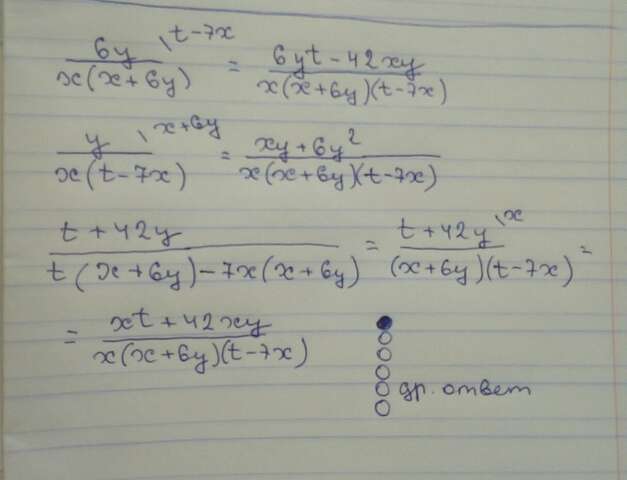 6y \ t-7x / x(x+6y) = 6yt-42xy / x(x+6y)(t-7x)
y \ x+6y / x(t-7x) = xy+6y² / x(x+6y)(t-7x)
t+42y / t(x+6y)-7x(x+6y) = t+42y \ x / (x+6y)(t-7x) =
= xt+42xy / x(x+6y)(t-7x)
др. ответ